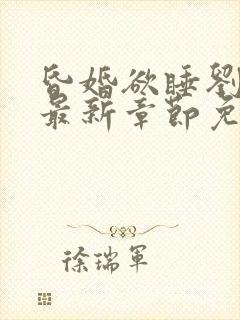 昏婚欲睡劉
最新章節免
徐瑞軍